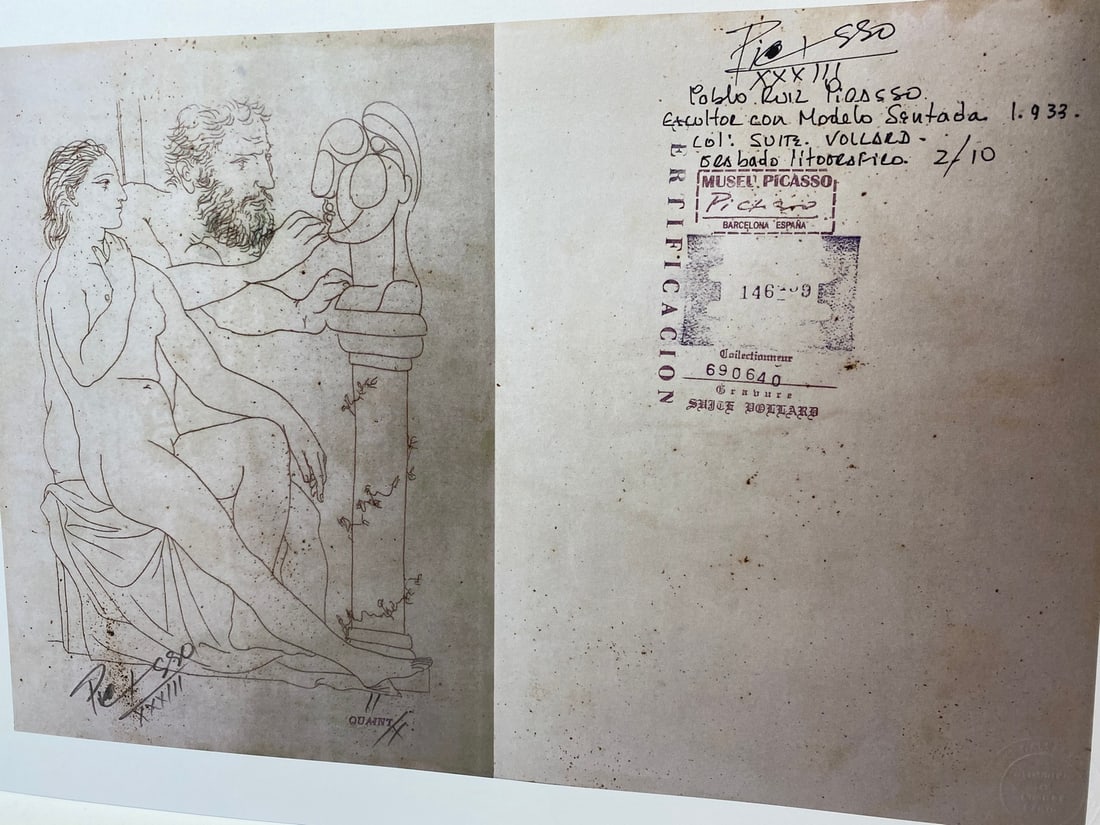 Picasso
XXXIII
QUAINT
II
Picasso
XXXIII
Pablo RUIZ PICASSO.
Escultor con Modelo Sentada 1.933.
COl: SUITE. VOLLARD.
Grabado litografico. 2/10
CERTIFICACION
MUSEU PICASSO
Picasso
BARCELONA "ESPAÑA"
Collectionneur
690640
Gravure
SUITE VOLLARD